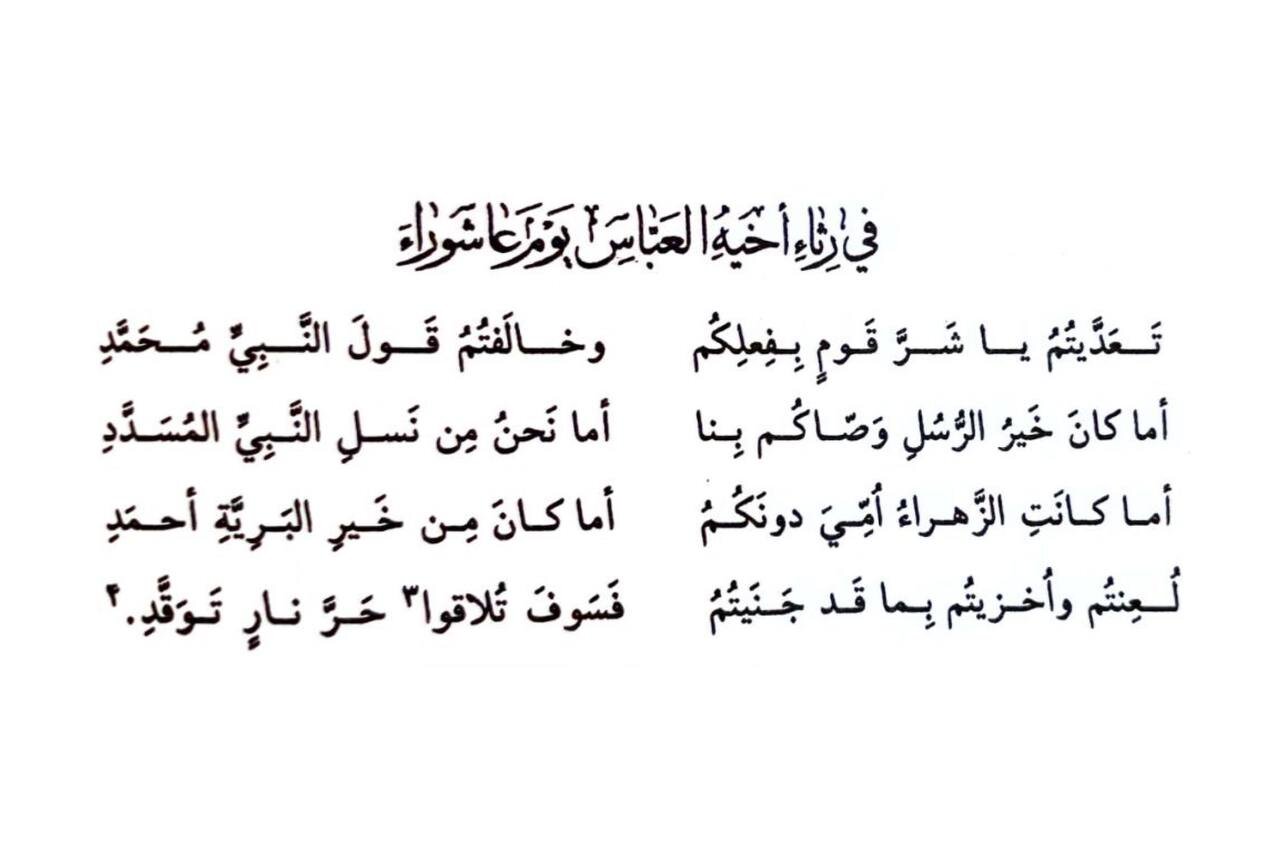 في رِثاءِ أخيهِ العَبّاسِ يَوْمَ عاشوراءَ
تَعَدَّيتُمُ يا شَرَّ قَومٍ بِفِعلِكُم وخالَفتُمُ قَولَ النَّبِيِّ مُحَمَّدِ
أما كانَ خَيرُ الرُّسُلِ وَصّاكُم بِنا أما نَحنُ مِن نَسلِ النَّبِيِّ المُسَدَّدِ
أما كانَتِ الزَّهراءُ اُمِّيَ دونَكُمُ أما كانَ مِن خَيرِ البَرِيَّةِ أحمَدِ
لُعِنتُم واُخزيتُم بِما قَد جَنَيتُمُ فَسَوفَ تُلاقوا٣ حَرَّ نارٍ تَوَقَّدِ.۴